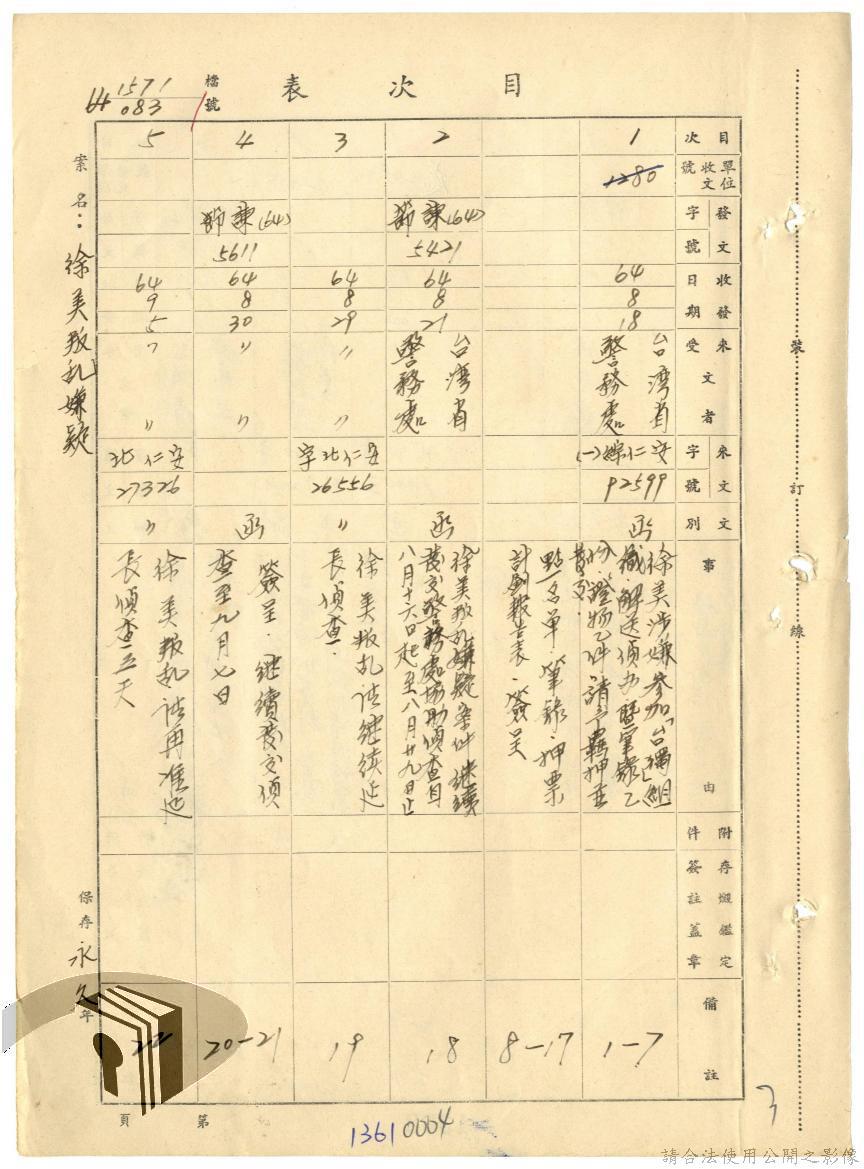 目次表
檔號
1571
64 083
案名：徐美叛乱嫌疑
目次
單位收文號
發文字號
收發日期
來文受文者
來文字號
文別
事由
附件存燬簽註鑑定蓋章
備註
1
1280
64
8
18
台湾省
警務處
(一)綜仁安
92599
函
徐美涉嫌參加「台獨」組
織、解送偵办暨筆錄乙
份、證物乙件、請予羈押並
點名單、筆錄、押票
計劃報告表、簽呈
1-7
8-17
2
(64)諫部
5421
64
8
21
台湾省
警務處
函
徐美叛乱嫌疑案件継續
發交警務處協助偵查自
八月十六日起至八月廿九日止
18
3
64
8
29
〃
〃
安仁北字
26556
〃
徐美叛乱請继续延
長偵查．
19
4
(64)諫部
5611
64
8
30
〃
〃
函
簽呈．继續發交偵
查至九月七日
20-21
5
64
9
5
〃
〃
安仁北
27326
〃
徐美叛乱請再准延
長偵查五天
22
保存永久年
第 頁
裝訂線
13610004
3
請合法使用公開之影像